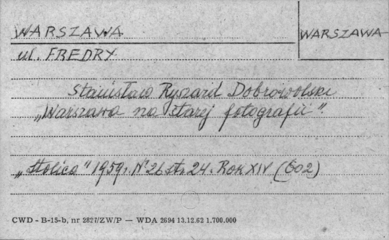 WARSZAWA
WARSZAWA
ul. FREDRY
Stanisław Ryszard Dobrowolski
„Warszawa na starej fotografii”.
„Stolica” 1959 r. Nr 26 str. 24. Rok XIV (602)
CWD - B-15-b, nr 2827/ZW/P — WDA 2694 13.12.63 1.700.000